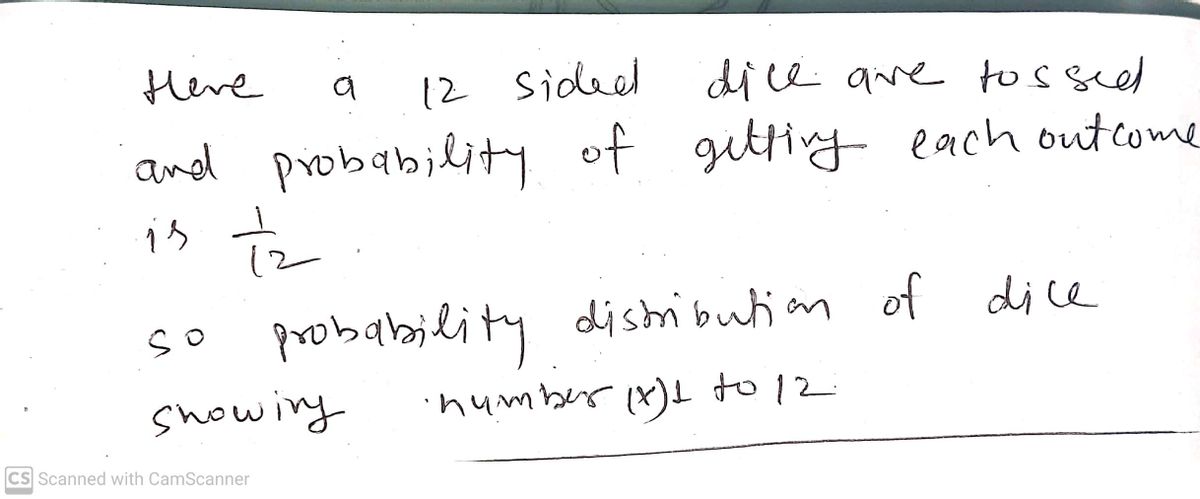 Here a 12 sided dice are tossed
and probability of getting each outcome
is 1/12.
so probability distribution of dice
showing number (x) 1 to 12.
CS Scanned with CamScanner